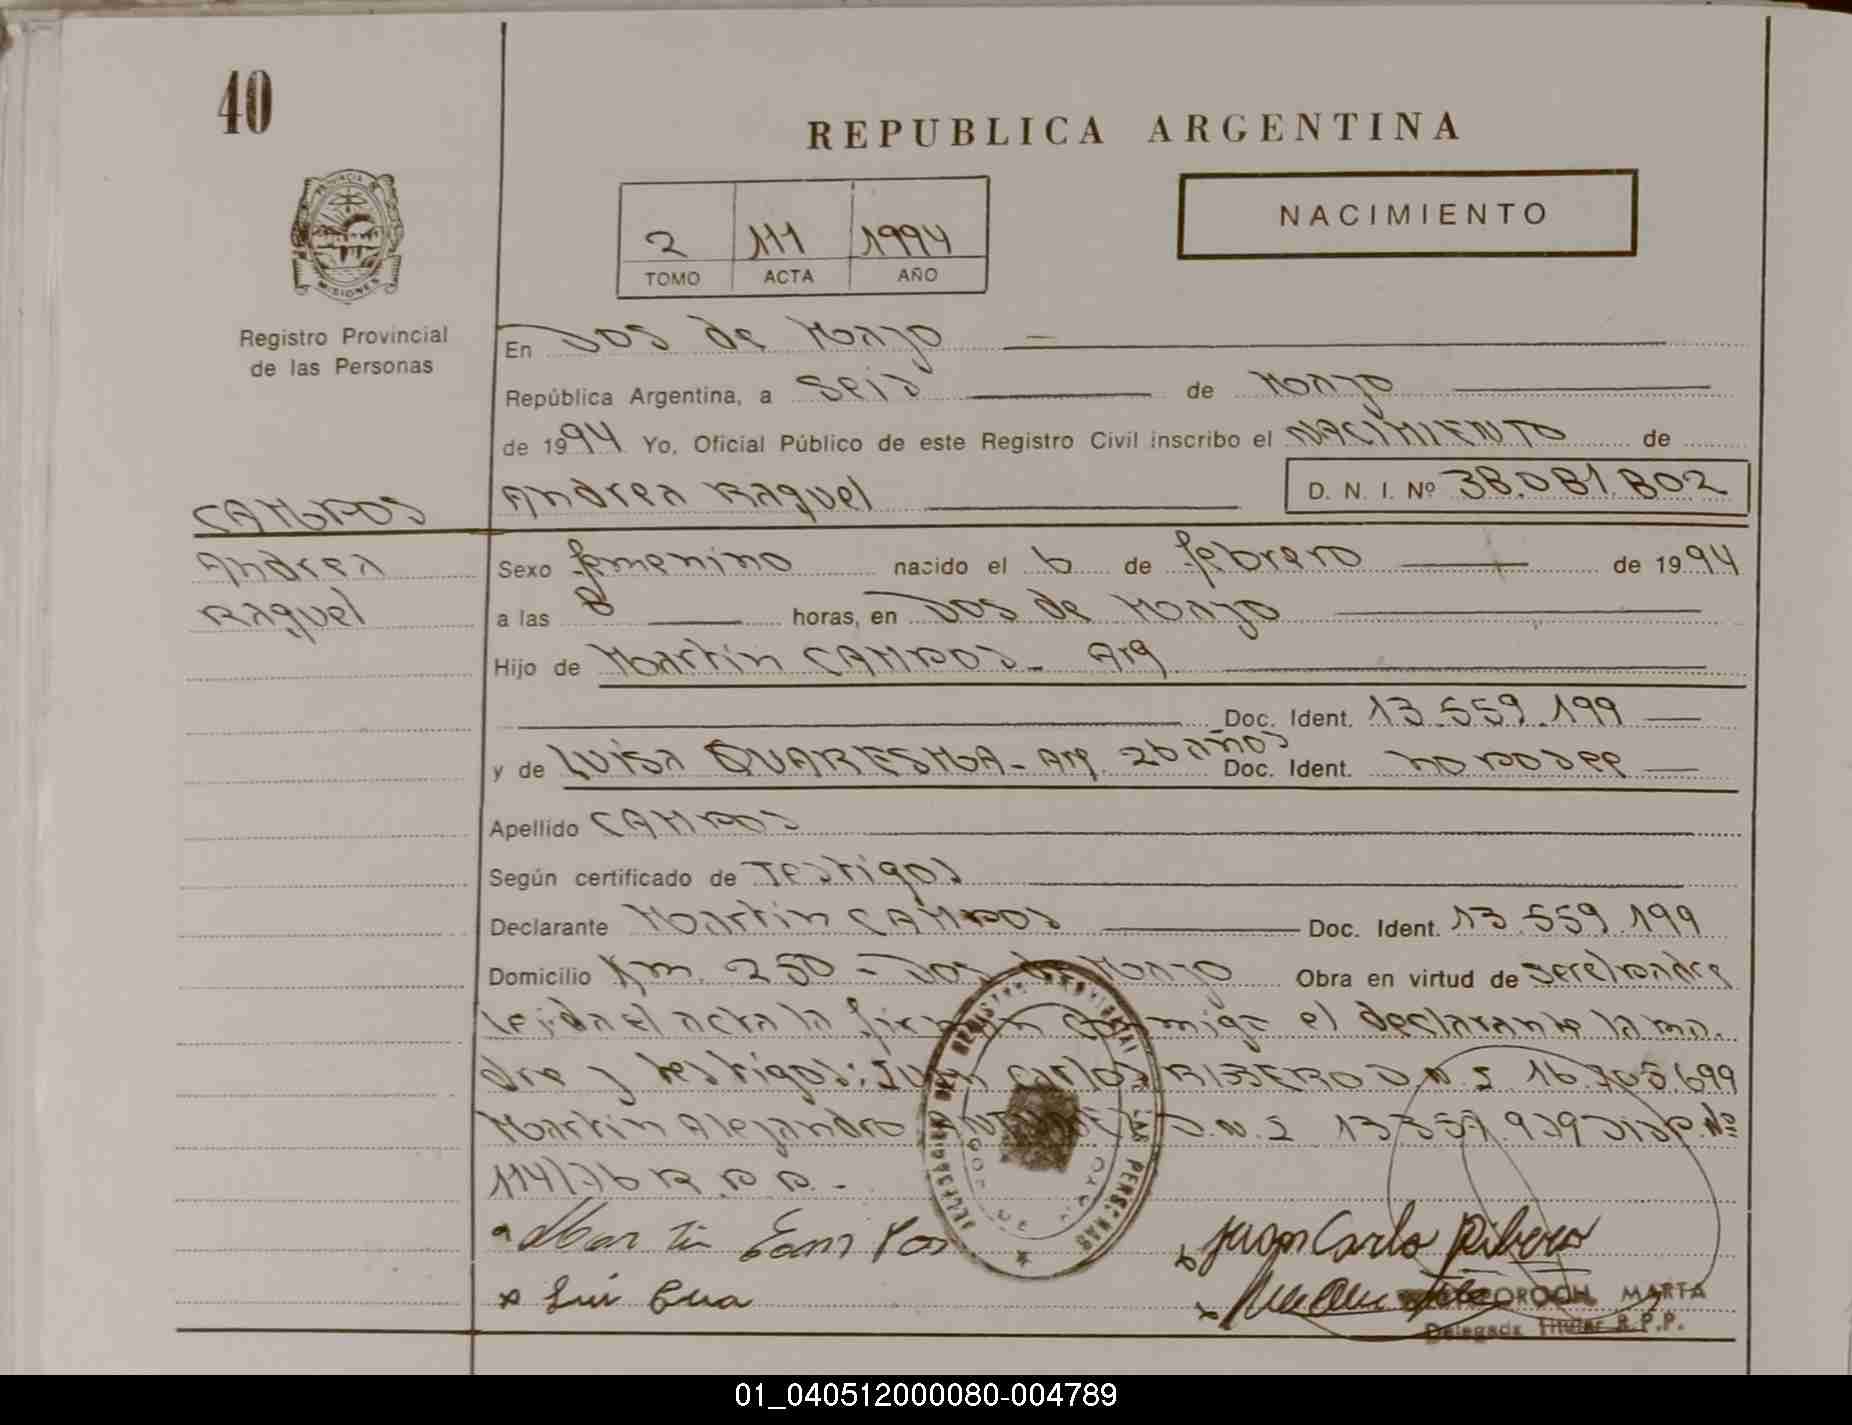 40
REPUBLICA ARGENTINA
PROVINCIA DE
MISIONES
2 111 1994
TOMO ACTA AÑO
NACIMIENTO
Registro Provincial
de las Personas
En Dos de Mayo
República Argentina, a seis de Mayo
de 1994 Yo, Oficial Público de este Registro Civil inscribo el NACIMIENTO de
CAMPOS Andrea Raquel D. N. I. Nº 38.081.802
Andrea
Raquel
Sexo femenino nacido el 6 de febrero de 1994
a las 8 horas, en Dos de Mayo
Hijo de Martín CAMPOS - Arg
Doc. Ident. 13.559.199
y de Luisa QUARESMA - Arg. 26 años Doc. Ident. no posee
Apellido CAMPOS
Según certificado de Testigos
Declarante Martín CAMPOS Doc. Ident. 13.559.199
Domicilio Km. 250 - Dos de Mayo Obra en virtud de ser el padre
Leída el acta la firman conmigo el declarante la ma-
dre y testigos: Juan Carlos RIBERO D.N.I 16.305.699
Martín Alejandro D.N.I 13.559.939 Disp. Nº
114/76 R.P.P. -
Martin Campos
Juan Carlo Ribero
MARTA
Delegada Titular R.P.P.
DELEGACION DEL REGISTRO PROVINCIAL DE LAS PERSONAS
01_040512000080-004789